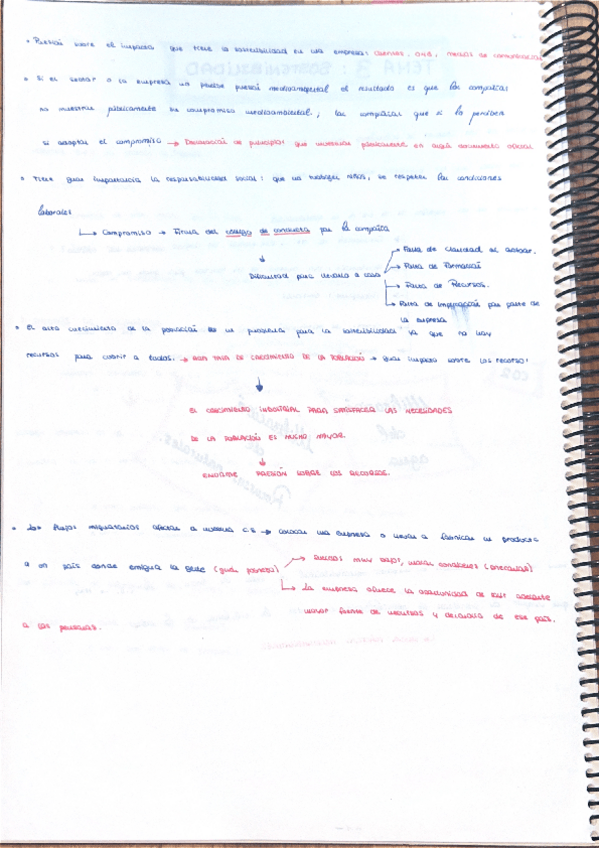 • Presión sobre el impacto que tiene la sostenibilidad en una empresa: clientes, ONG, medios de comunicación
• Si el sector o la empresa no posee presión medioambiental el resultado es que las compañías
no muestran públicamente su compromiso medioambiental, las compañías que si la perciben
si adoptan el compromiso → Declaración de principios que muestran públicamente en algún documento oficial
• Tiene gran importancia la responsabilidad social: que no trabajen niños, se respeten las condiciones
laborales
→ Compromiso → Firma del código de conducta por la compañía
↓ → Falta de claridad al adoptar.
Dificultad para llevarlo a cabo → Falta de Formación
→ Falta de Recursos.
→ Falta de Implicación por parte de
la empresa
• El alto crecimiento de la población es un problema para la sostenibilidad ya que no hay
recursos para cubrir a todos. → Alta tasa de crecimiento de la población → gran impacto sobre los recursos
↓
El crecimiento industrial para satisfacer las necesidades
de la población es mucho mayor.
↓
Enorme presión sobre los recursos.
• Los flujos migratorios afectan a nuestra C.S → colocar una empresa o llevar a fabricar un producto
a un país donde emigra la gente (gran pobreza) → Sueldos muy bajos, malas condiciones
→ La empresa ofrece la oportunidad de ser
mayor fuente de y de ese país.
a las personas.